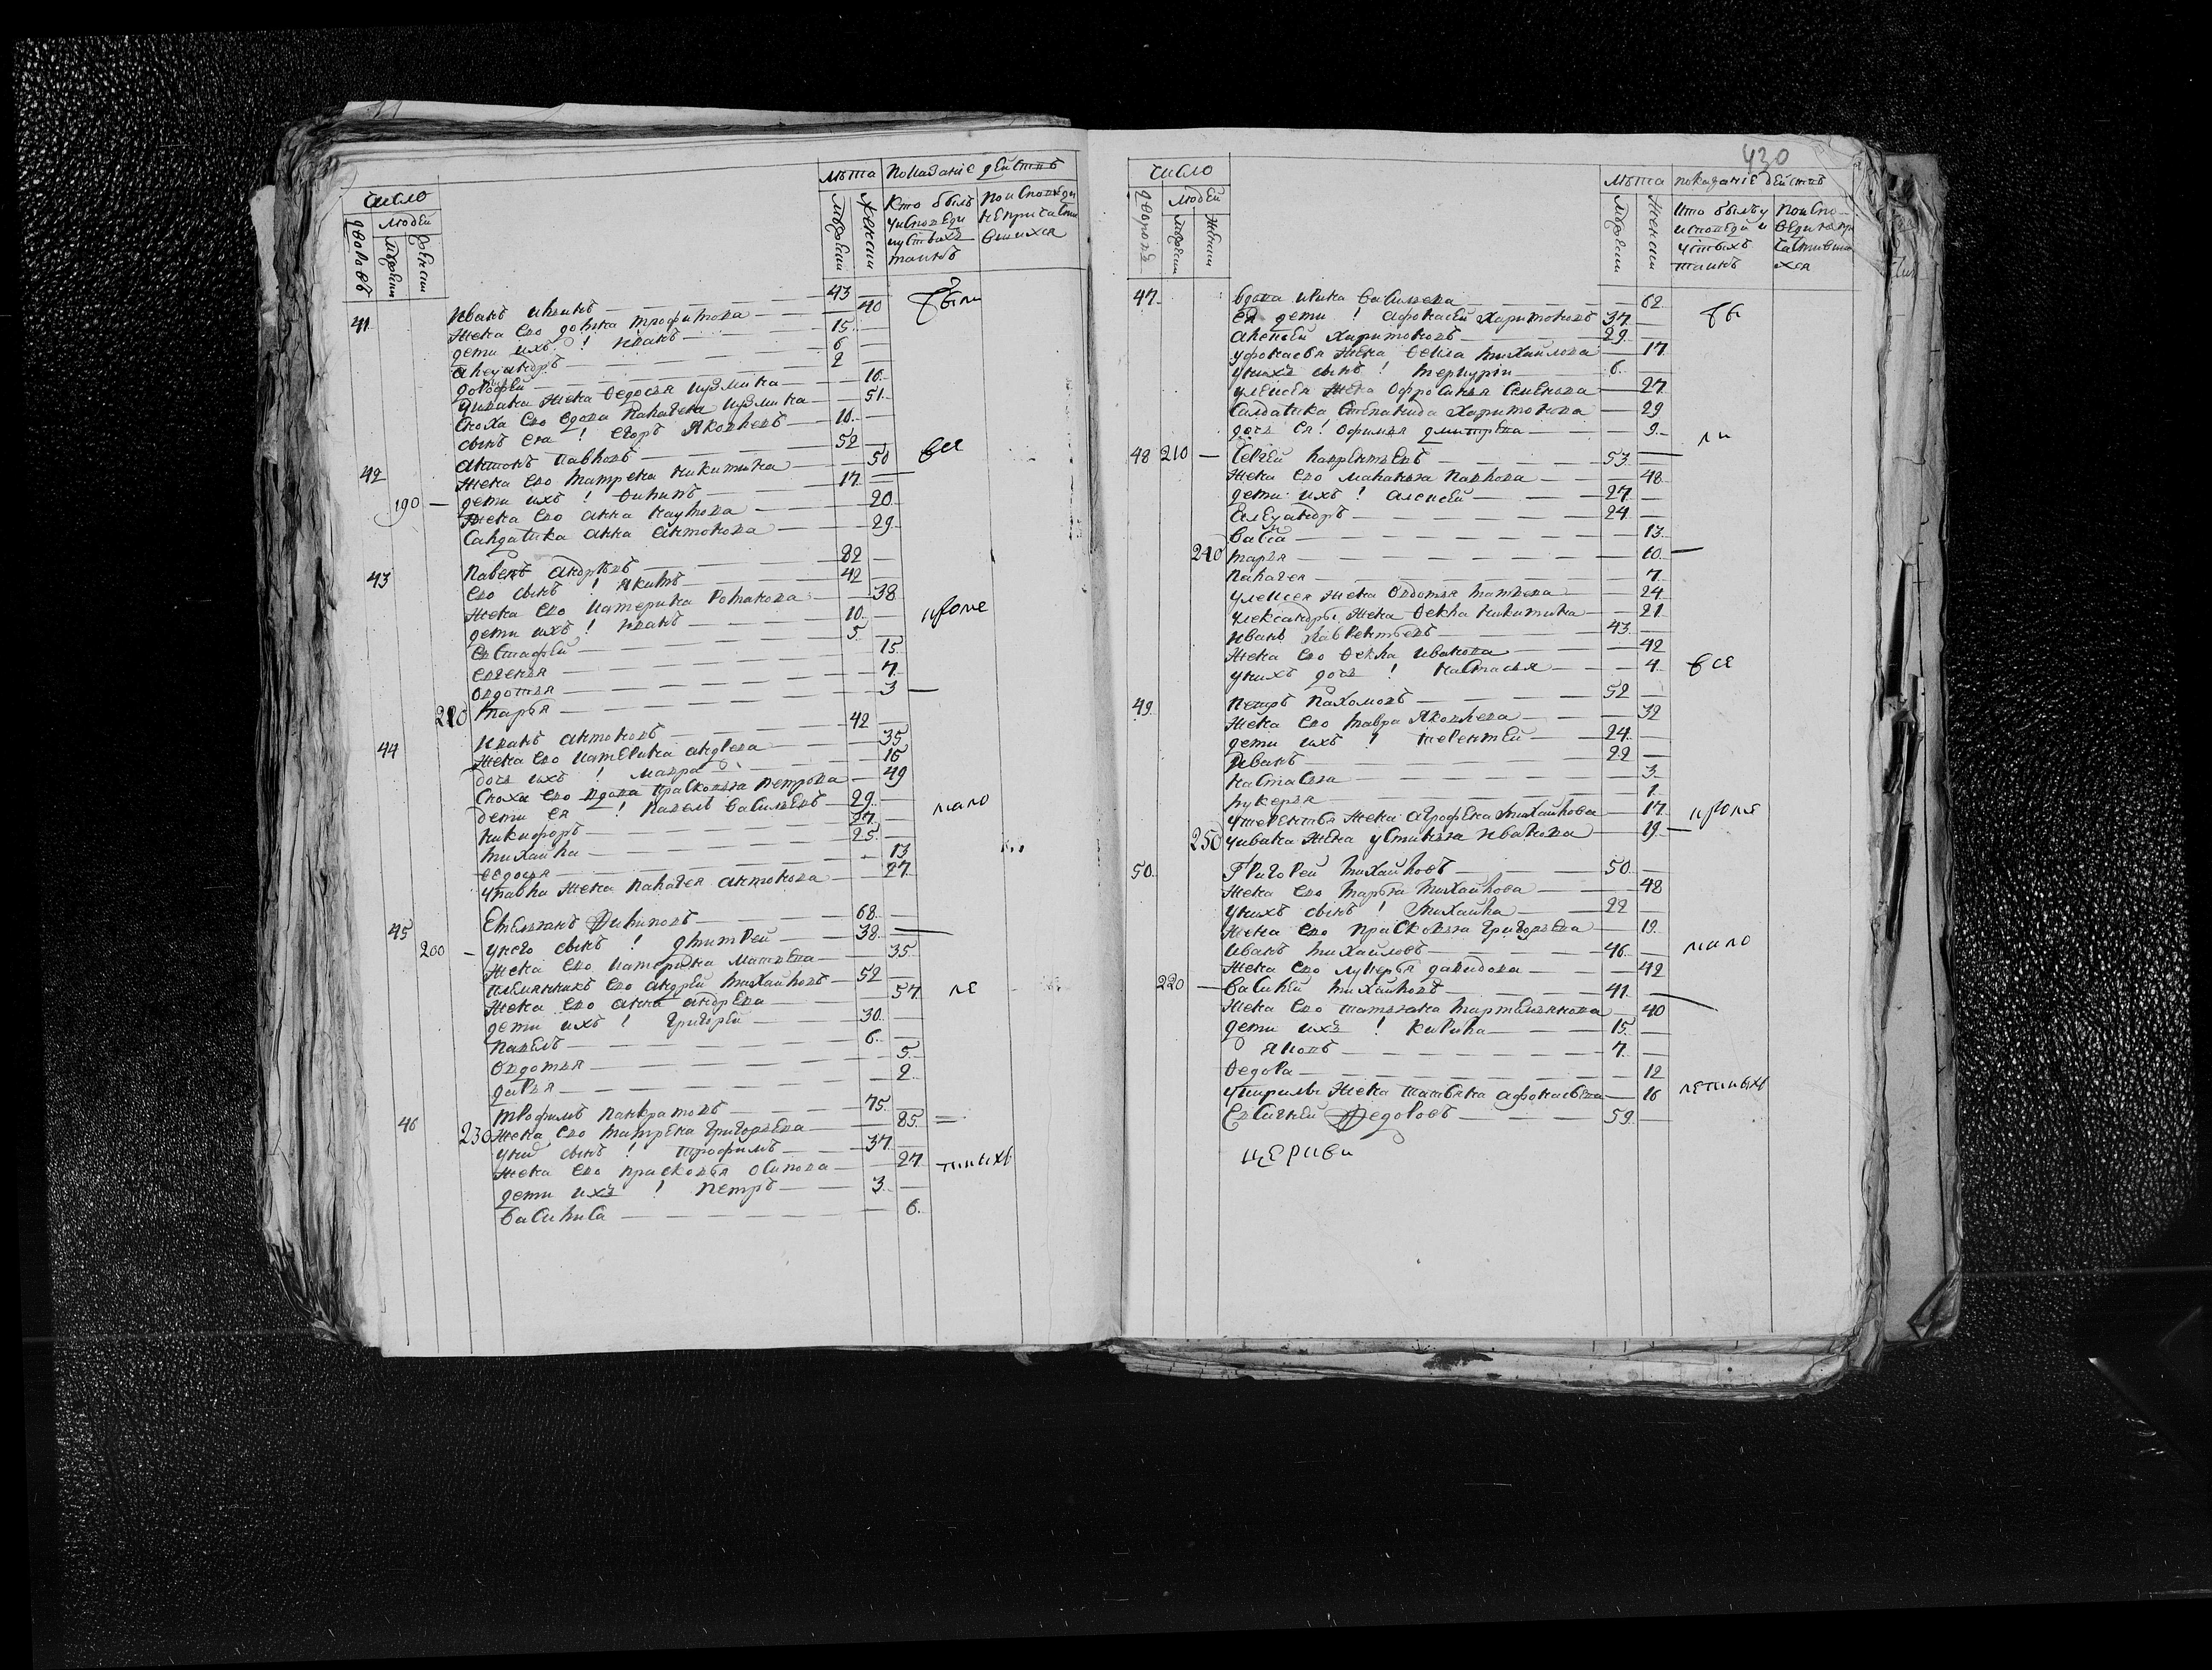 число
людей
дворовъ
мужеска
женска
лѣта
мужески
женски
показаніе действъ
Кто былъ
у исповеди
и у святыхъ
таинъ
по исповеди
не причасти
вшихся
41 Иванъ Ильинъ — 43
жена его домна трофимова — 40
дети ихъ ! иванъ — 15
алеѯандръ — 6
дорофей — 2
жена Федосья кузмина — 16
сноха его вдова палагея кузмина — 51
сынъ ея ! егоръ яковлевъ — 10
были
42 антонъ павловъ — 52
жена его матрена никитина — 50
190 — дети ихъ ! филипъ — 17
жена его анна наумова — 20
салдатка анна антонова — 29
все
43 павелъ андрѣевъ — 82
его сынъ ! якимъ — 42
жена его катерина романова — 38
дети ихъ ! иванъ — 10
евстафей — 5
евгенья — 15
овдотья — 7
220 марья — 3
кроме
44 иванъ антоновъ — 42
жена его катерина андрева — 35
дочь ихъ ! мавра — 16
сноха его вдова прасковья петрова — 49
дети ея ! павелъ васильевъ — 29
никифоръ — 27
михайла — 25
федосья — 13
у павла жена палагея антонова — 27
мало
45 Емельянъ Филиповъ — 68
200 — у него сынъ ! дмитрей — 38
жена его катерина матвева — 35
племянникъ его андрей михайловъ — 52
жена его анна андрева — 57
дети ихъ ! григорей — 30
павелъ — 6
овдотья — 5
дарья — 2
ле
46 трофимъ панкратовъ — 75
230 жена его матрена григорьева — 85
сынъ ! трофимъ — 37
жена его прасковья осипова — 27
дети ихъ ! петръ — 3
василиса — 6
тныхъ
430
число
людей
дворовъ
мужески
женски
лѣта
мужески
женски
показаніе действъ
кто былъ у
исповеди и
у святыхъ
таинъ
по испо-
веди не пр
частивши
хся
47 вдова ирина васильева — 62
ея дети ! афонасей харитоновъ — 37
алексей харитоновъ — 29
у афонасья жена фекла михайлова — 17
у нихъ сынъ ! меркурiй — 6
у алексея жена офросинья семенова — 27
салдатка степанида харитонова — 29
дочь ея ! офимья дмитрева — 9
бы
ли
48 210 — Сергей лаврентьевъ — 53
жена его маланья павлова — 48
дети ихъ ! алексей — 27
алеѯандръ — 24
васса — 13
240 марья — 10
палагея — 7
у алексея жена овдотья матвева — 24
у александры жена фекла никитина — 21
иванъ лаврентьевъ — 43
жена его фекла иванова — 42
у нихъ дочь ! настасья — 4
все
49 петръ пахомовъ — 52
жена его мавра яковлева — 32
дети ихъ ! терентей — 24
иванъ — 22
настасья — 3
лукерья — 1
у терентья жена агрофена михайлова — 17
250 у ивана жена устинья иванова — 19
кроме
50 Григорей михайловъ — 50
жена его марья михайлова — 48
у нихъ сынъ ! михайла — 22
жена его прасковья григорьева — 19
иванъ михайловъ — 46
жена его лукерья давидова — 42
мало
220 — василей михайловъ — 41
жена его татьяна мартемьянова — 40
дети ихъ ! кирила — 15
яковъ — 7
федора — 12
у кирилы жена татьяна афонасьева — 16
летныхъ
Евсигней Федоровъ — 59
церкви